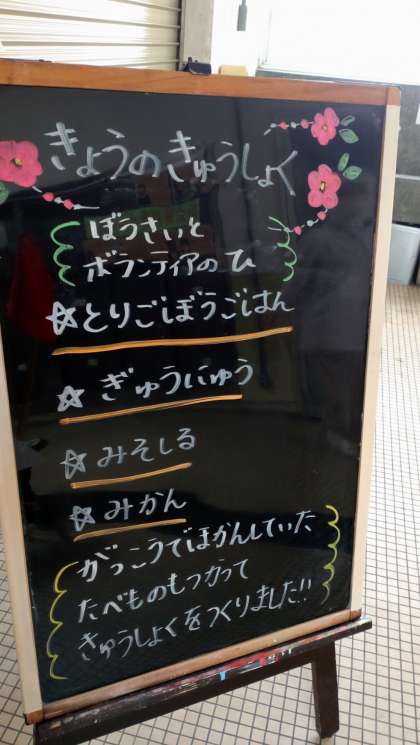 きょうのきゅうしょく
ぼうさいと
ボランティアのひ
☆とりごぼうごはん
☆ぎゅうにゅう
☆みそしる
☆みかん
がっこうでほかんしていた
たべものもつかって
きゅうしょくをつくりました!!